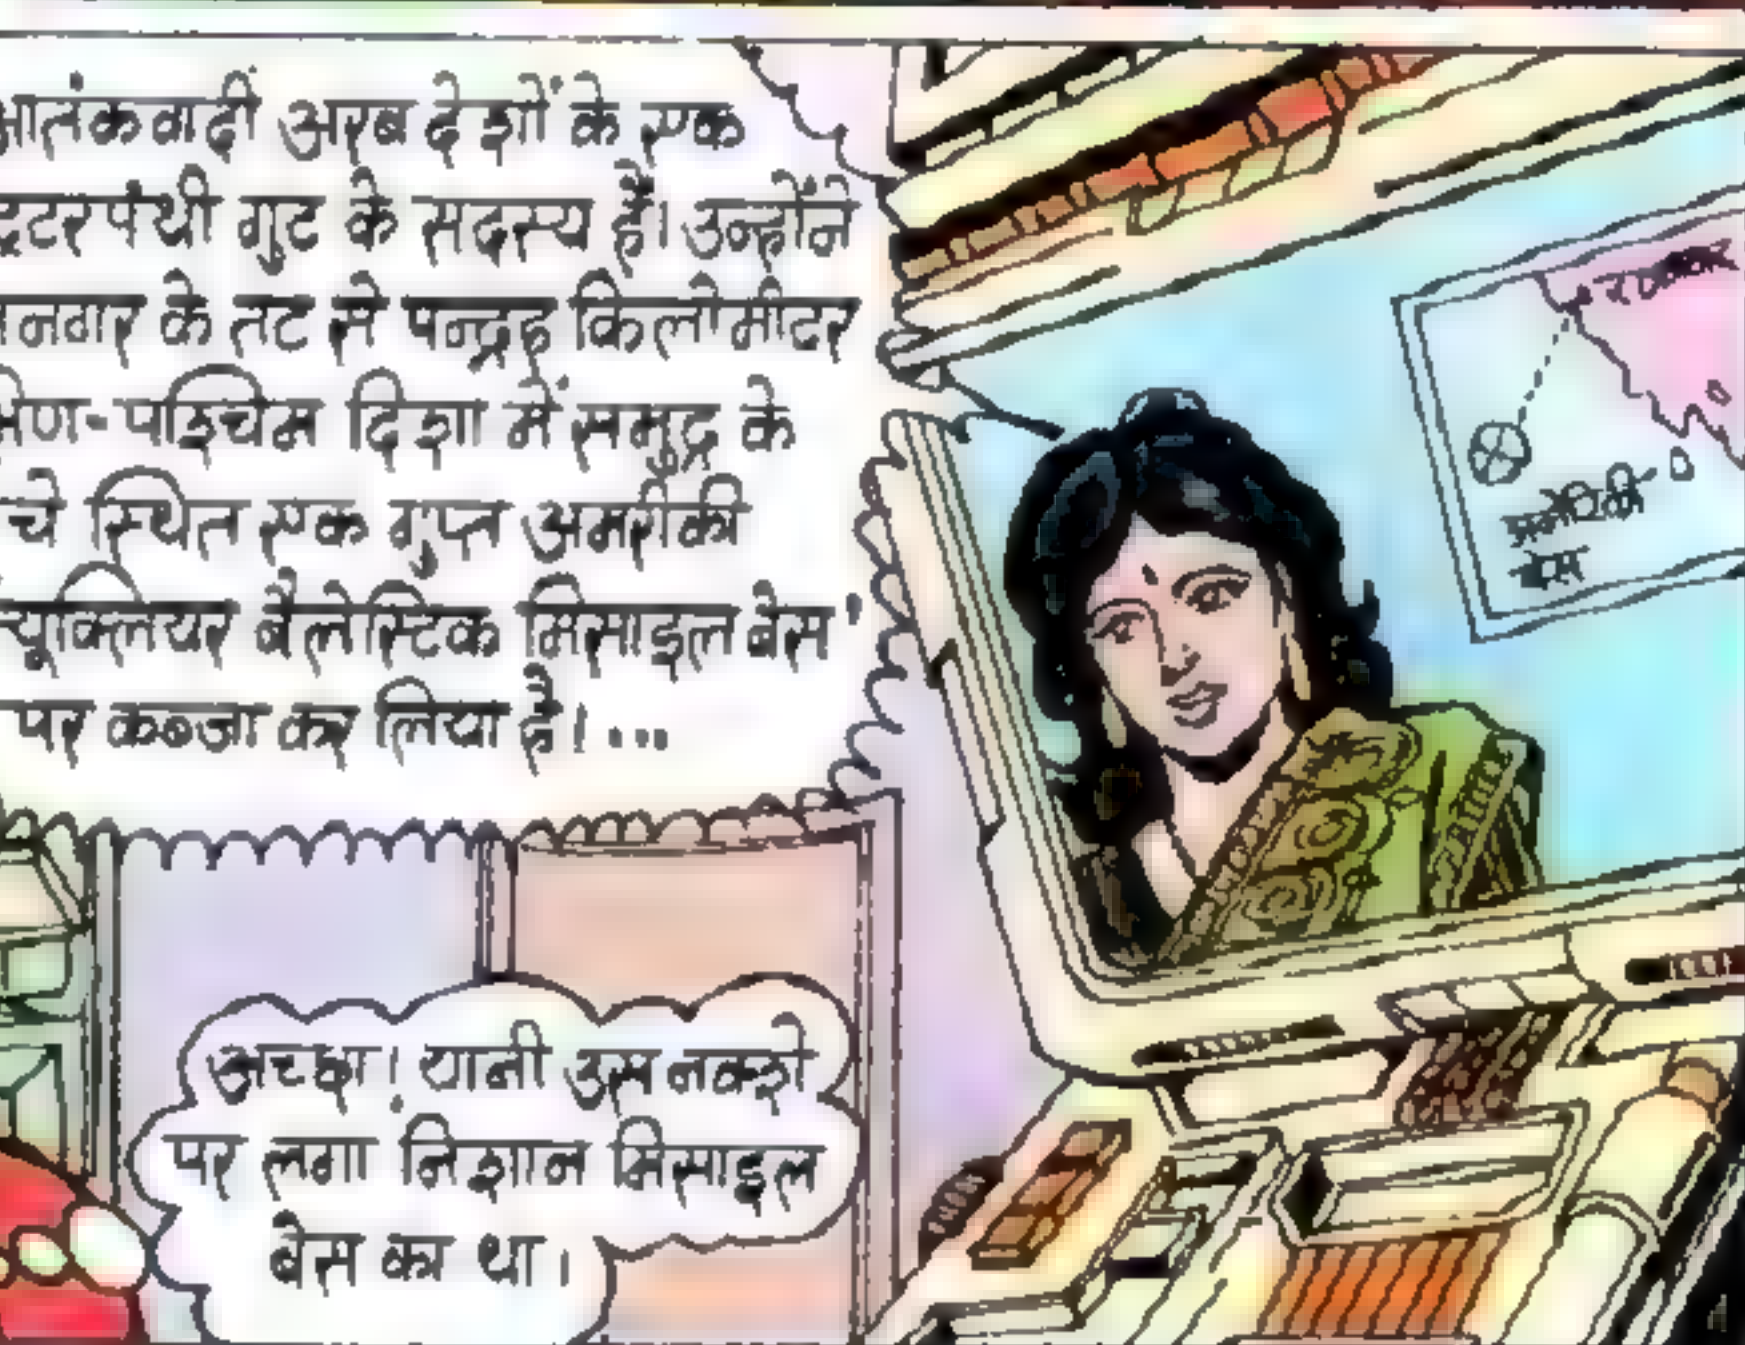 आतंकवादी अरब देशों के एक
गुट के सदस्य हैं। उन्होंने
नगर के तट से पन्द्रह किलोमीटर
-पश्चिम दिशा में समुद्र के
चे स्थित एक गुप्त अमरीकी
न्यूक्लियर बैलेस्टिक मिसाइल बेस'
पर कब्जा कर लिया है।...
अमेरिकी
बेस
अच्छा! यानी उस नक्शे
पर लगा निशान मिसाइल
बेस का था।